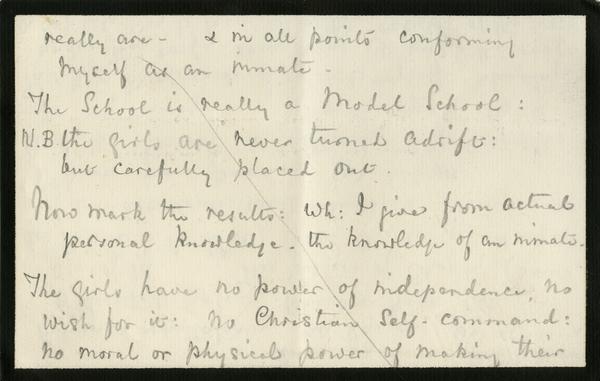 really are - & in all points conforming
myself as an inmate -
The School is really a Model School:
N.B. the girls are never turned adrift:
but carefully placed out.
Now mark the results: wh: I give from actual
personal knowledge - the knowledge of an inmate -
The girls have no power of independence, no
wish for it: no Christian Self-command:
no moral or physical power of making their